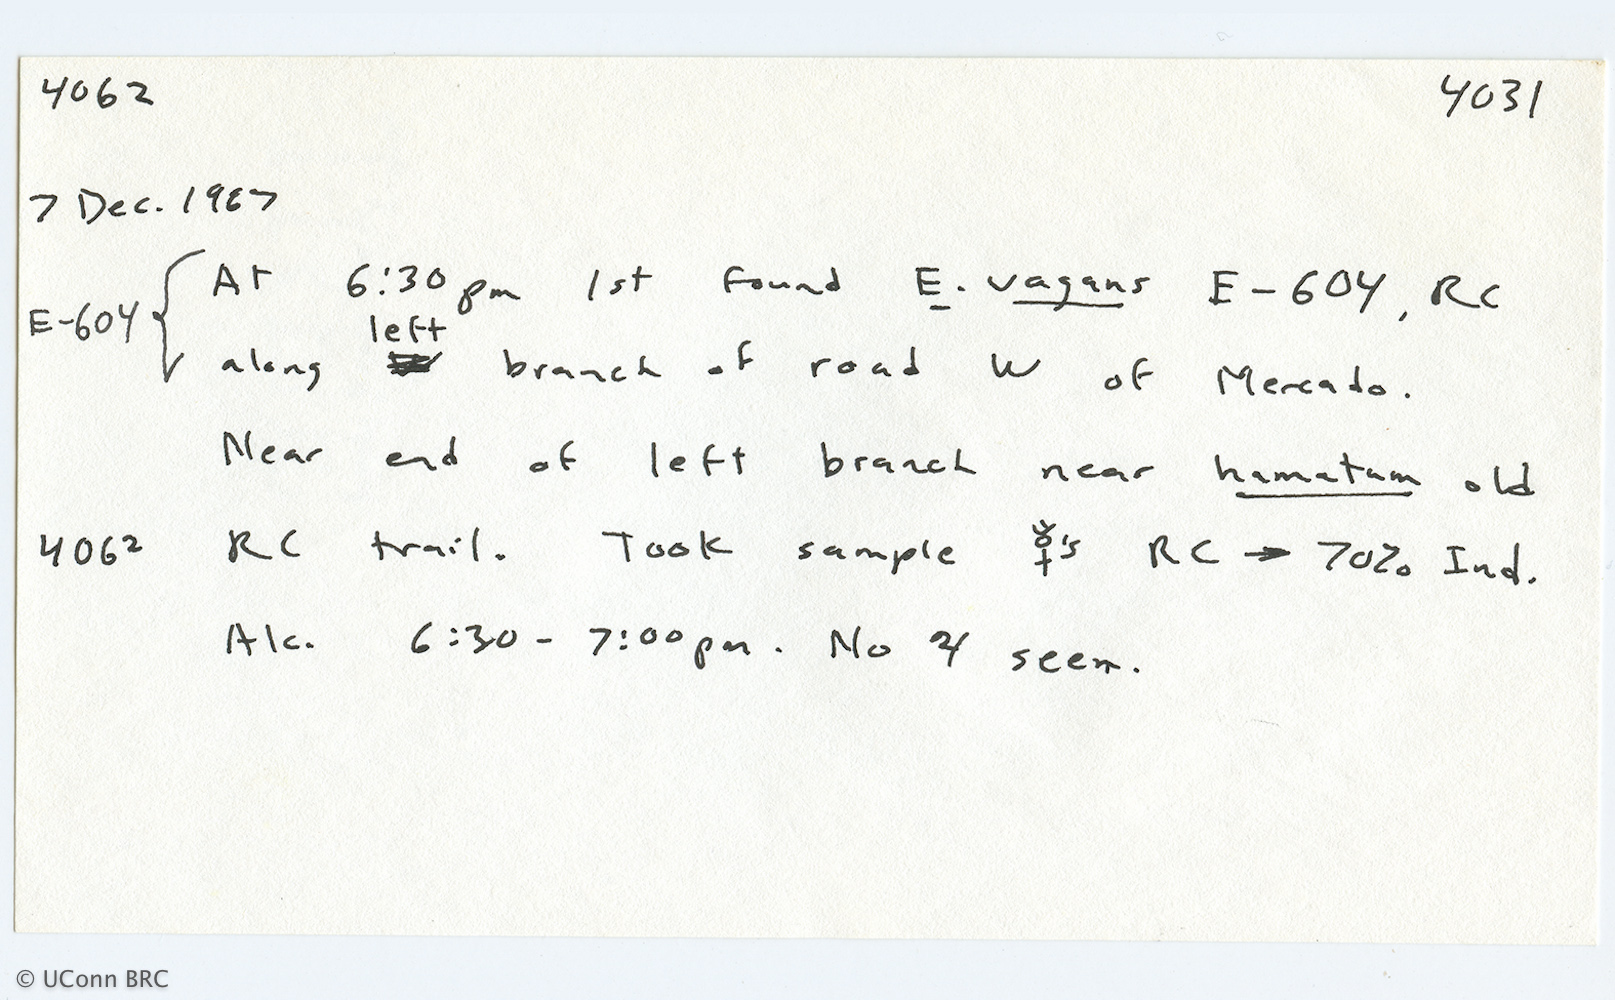 4062 4031
7 Dec. 1967
E-604 { At 6:30 pm 1st found E. vagans E-604, RC
left
along branch of road W of Mercado.
Near end of left branch near hamatum old
4062 RC trail. Took sample ☿'s RC → 70% Ind.
Alc. 6:30 - 7:00 pm. No ♃ seen.
© UConn BRC